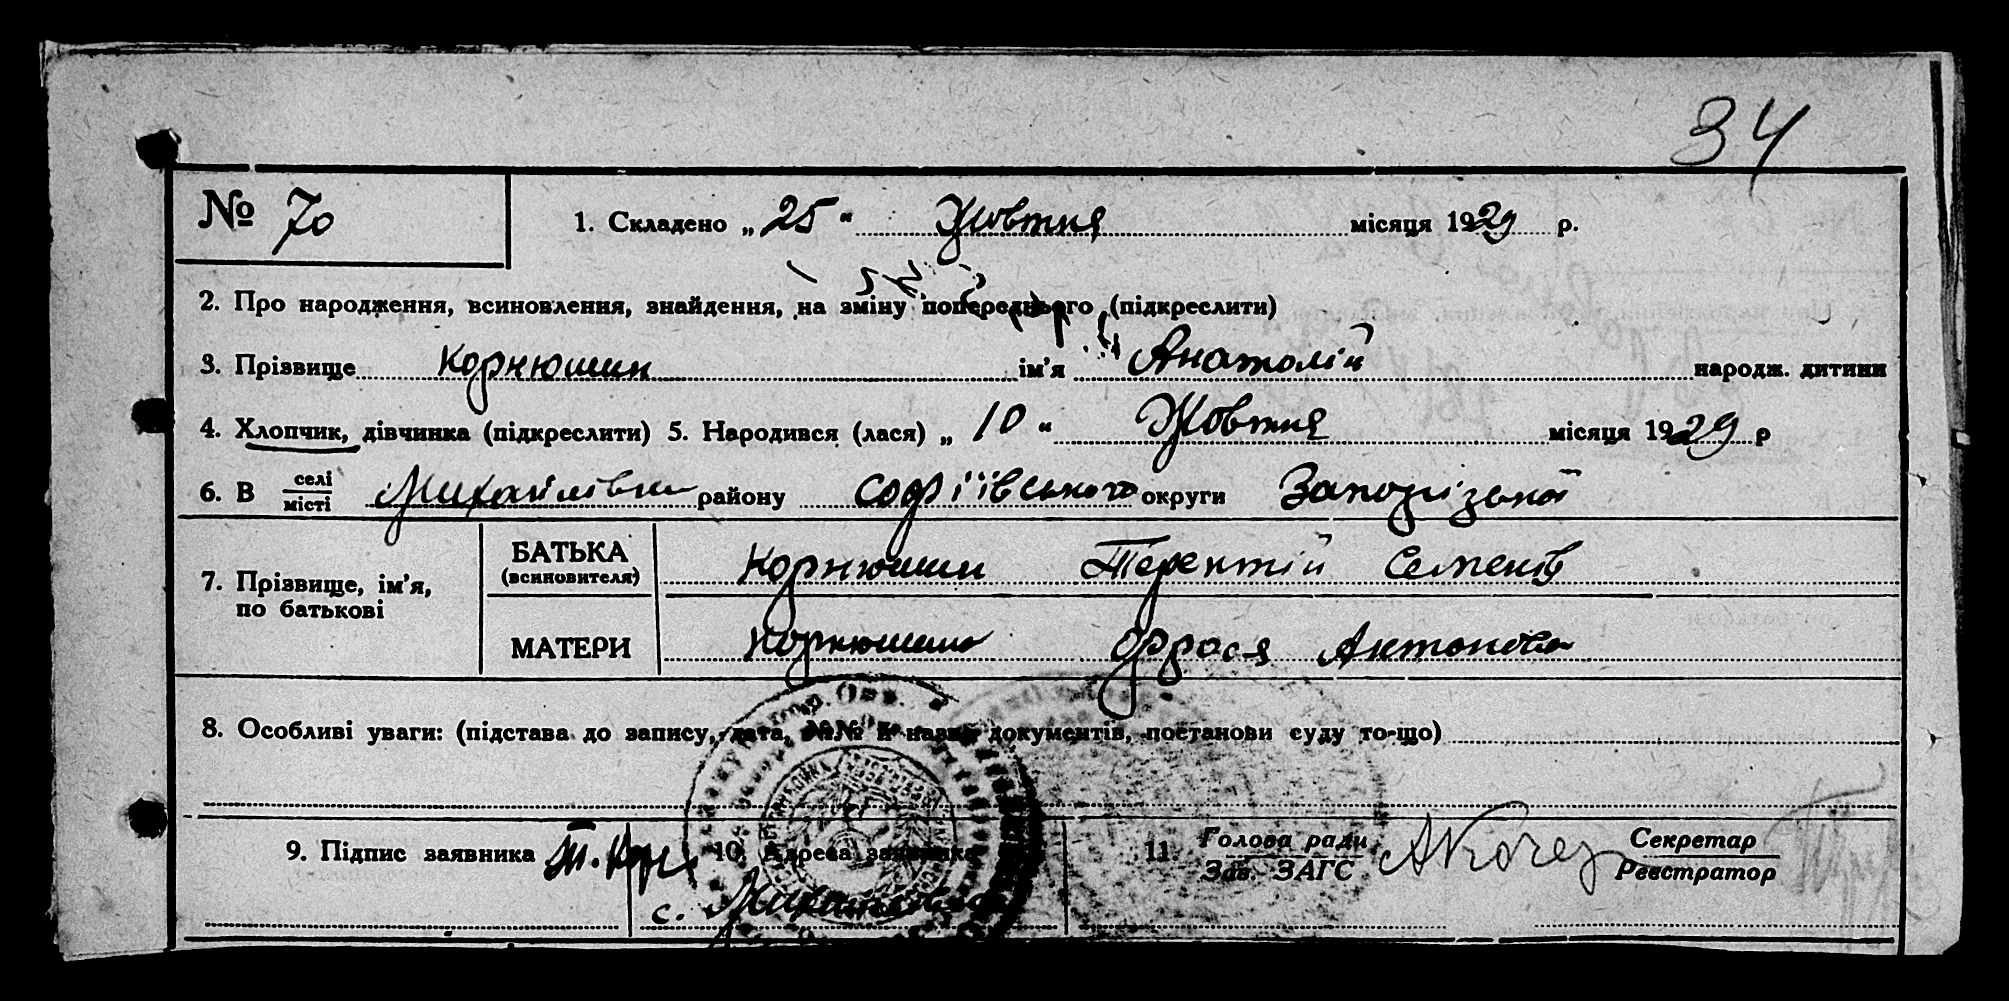 34
№ 70
1. Складено „ 25 “ Жовтня місяця 1929 р.
2. Про народження, всиновлення, знайдення, на зміну попереднього (підкреслити)
3. Прізвище Корнюшин ім'я Анатолій народж. дитини
4. Хлопчик, дівчинка (підкреслити) 5. Народився (лася) „ 10 “ Жовтня місяця 1929 р
6. В селі місті Михайлівки району Софіївського округи Запорізької
7. Прізвище, ім'я, по батькові
БАТЬКА (всиновителя) Корнюшин Терентій Семенів
МАТЕРИ Корнюшина Фрося Антонова
8. Особливі уваги: (підстава до запису, дата, №№ й назва документів, постанови суду то-що)
9. Підпис заявника Т. Кор
10. Адреса заявника
с. Михайлівка
11. Голова ради Зав. ЗАГС
Секретар Реєстратор